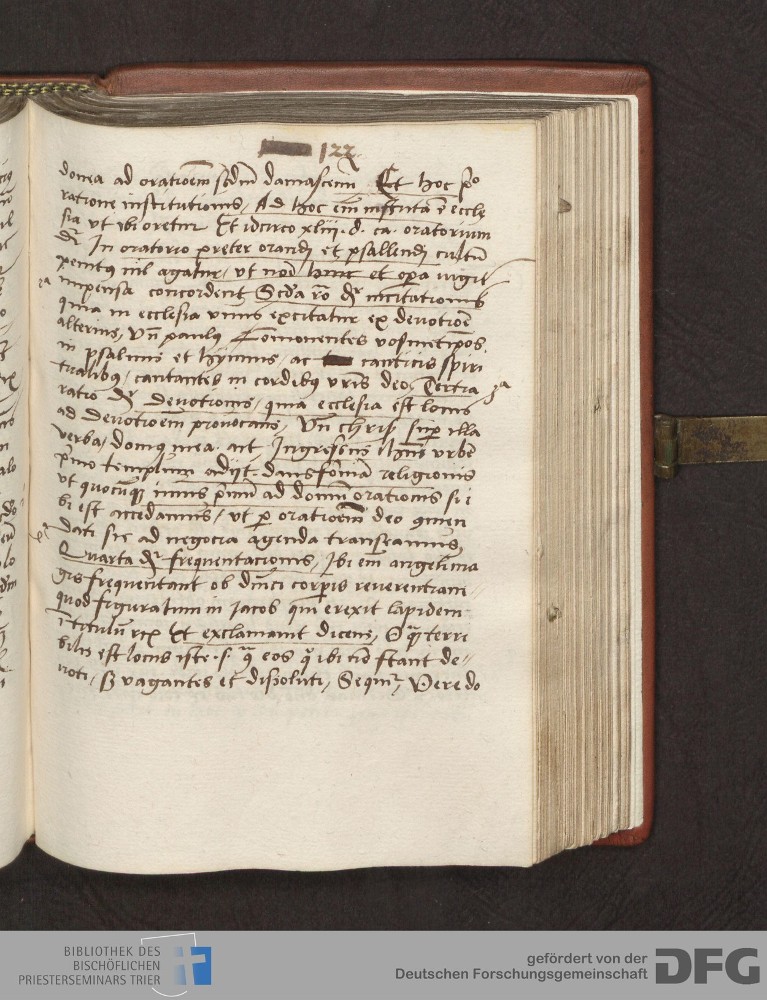 122
donea ad oratioēm scdm damascenū Et hoc pº
ratione institutionis, Ad hoc em̄ instituta ē eccle
sia ut ibi oretur Et idcirco xliij. d. ca. oratorium
dr In oratorio preter orandi et psallendi cultū
penitus nil agatur, ut nōi huic et opera iugit
2ª
impensa concordent Scda rō dr incitationis
quia in ecclesia unus excitatur ex deuotiōe
alterius, Vn̄ paulus Comonentes uosmetipos
in psalmis et hymnis, ac canticis spiri
tualibꝰ, cantantes in cordibꝰ vris deo, Tertia
3ª
ratio dr deuotionis, quia ecclesia est locus
ad deuotioēm prouocans, Vn̄ chris sup illa
verba, domꝰ mea. ait, Ingressus ihus urbē
pmo templum adijt. dans formā religionis
ut quocūqꝫ imus primū ad domū orationis si i
bi est accedamus, ut p oratioēm deo comen
dati sic ad negocia agenda transeamus,
4ª
Quarta dr frequentacionis, Ibi em̄ angeli ma
gis frequentant ob diuici corpis reuerentiam
quod figuratum in Jacob qui erexit lapidem
i titulū Et exclamauit dicens, O qꝫ terri
bilis est locus iste. s. qͣ eos qͥ ibi nō stant de-
uoti, sꝫ vagantes et dissoluti, Sequitr, Vere do
BIBLIOTHEK DES
BISCHÖFLICHEN
PRIESTERSEMINARS TRIER
gefördert von der
Deutschen Forschungsgemeinschaft
DFG